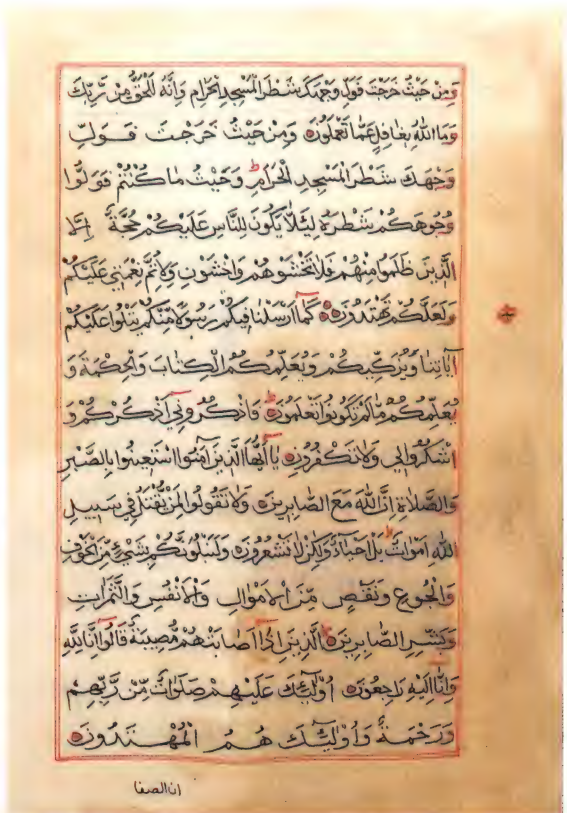 وَمِنْ حَيْثُ خَرَجْتَ فَوَلِّ وَجْهَكَ شَطْرَ الْمَسْجِدِ الْحَرَامِ وَاِنَّهُ لَلْحَقُّ مِنْ رَّبِّكَ
وَمَا اللّٰهُ بِغَافِلٍ عَمَّا تَعْمَلُوْنَ وَمِنْ حَيْثُ خَرَجْتَ فَوَلِّ
وَجْهَكَ شَطْرَ الْمَسْجِدِ الْحَرَامِ ط وَحَيْثُ مَا كُنْتُمْ فَوَلُّوْا
وُجُوْهَكُمْ شَطْرَهُ لِئَلَّا يَكُوْنَ لِلنَّاسِ عَلَيْكُمْ حُجَّةٌ اِلَّا
الَّذِيْنَ ظَلَمُوْا مِنْهُمْ فَلَا تَخْشَوْهُمْ وَاخْشَوْنِ وَلِاُتِمَّ نِعْمَتِيْ عَلَيْكُمْ
وَلَعَلَّكُمْ تَهْتَدُوْنَ كَمَا اَرْسَلْنَا فِيْكُمْ رَسُوْلًا مِنْكُمْ يَتْلُوْا عَلَيْكُمْ
اٰيَاتِنَا وَيُزَكِّيْكُمْ وَيُعَلِّمُكُمُ الْكِتَابَ وَالْحِكْمَةَ وَ
يُعَلِّمُكُمْ مَّا لَمْ تَكُوْنُوْا تَعْلَمُوْنَ فَاذْكُرُوْنِيْ اَذْكُرْكُمْ وَ
اشْكُرُوْا لِيْ وَلَا تَكْفُرُوْنِ يَا اَيُّهَا الَّذِيْنَ اٰمَنُوْا اسْتَعِيْنُوْا بِالصَّبْرِ
وَالصَّلَاةِ اِنَّ اللّٰهَ مَعَ الصَّابِرِيْنَ وَلَا تَقُوْلُوْا لِمَنْ يُّقْتَلُ فِيْ سَبِيْلِ
اللّٰهِ اَمْوَاتٌ ط بَلْ اَحْيَاءٌ وَلٰكِنْ لَا تَشْعُرُوْنَ وَلَنَبْلُوَنَّكُمْ بِشَيْءٍ مِّنَ الْخَوْفِ
وَالْجُوْعِ وَنَقْصٍ مِّنَ الْاَمْوَالِ وَالْاَنْفُسِ وَالثَّمَرَاتِ
وَبَشِّرِ الصَّابِرِيْنَ الَّذِيْنَ اِذَا اَصَابَتْهُمْ مُّصِيْبَةٌ قَالُوْا اِنَّا لِلّٰهِ
وَاِنَّا اِلَيْهِ رَاجِعُوْنَ اُوْلٰئِكَ عَلَيْهِمْ صَلَوَاتٌ مِّنْ رَّبِّهِمْ
وَرَحْمَةٌ وَاُوْلٰئِكَ هُمُ الْمُهْتَدُوْنَ
ان الصفا